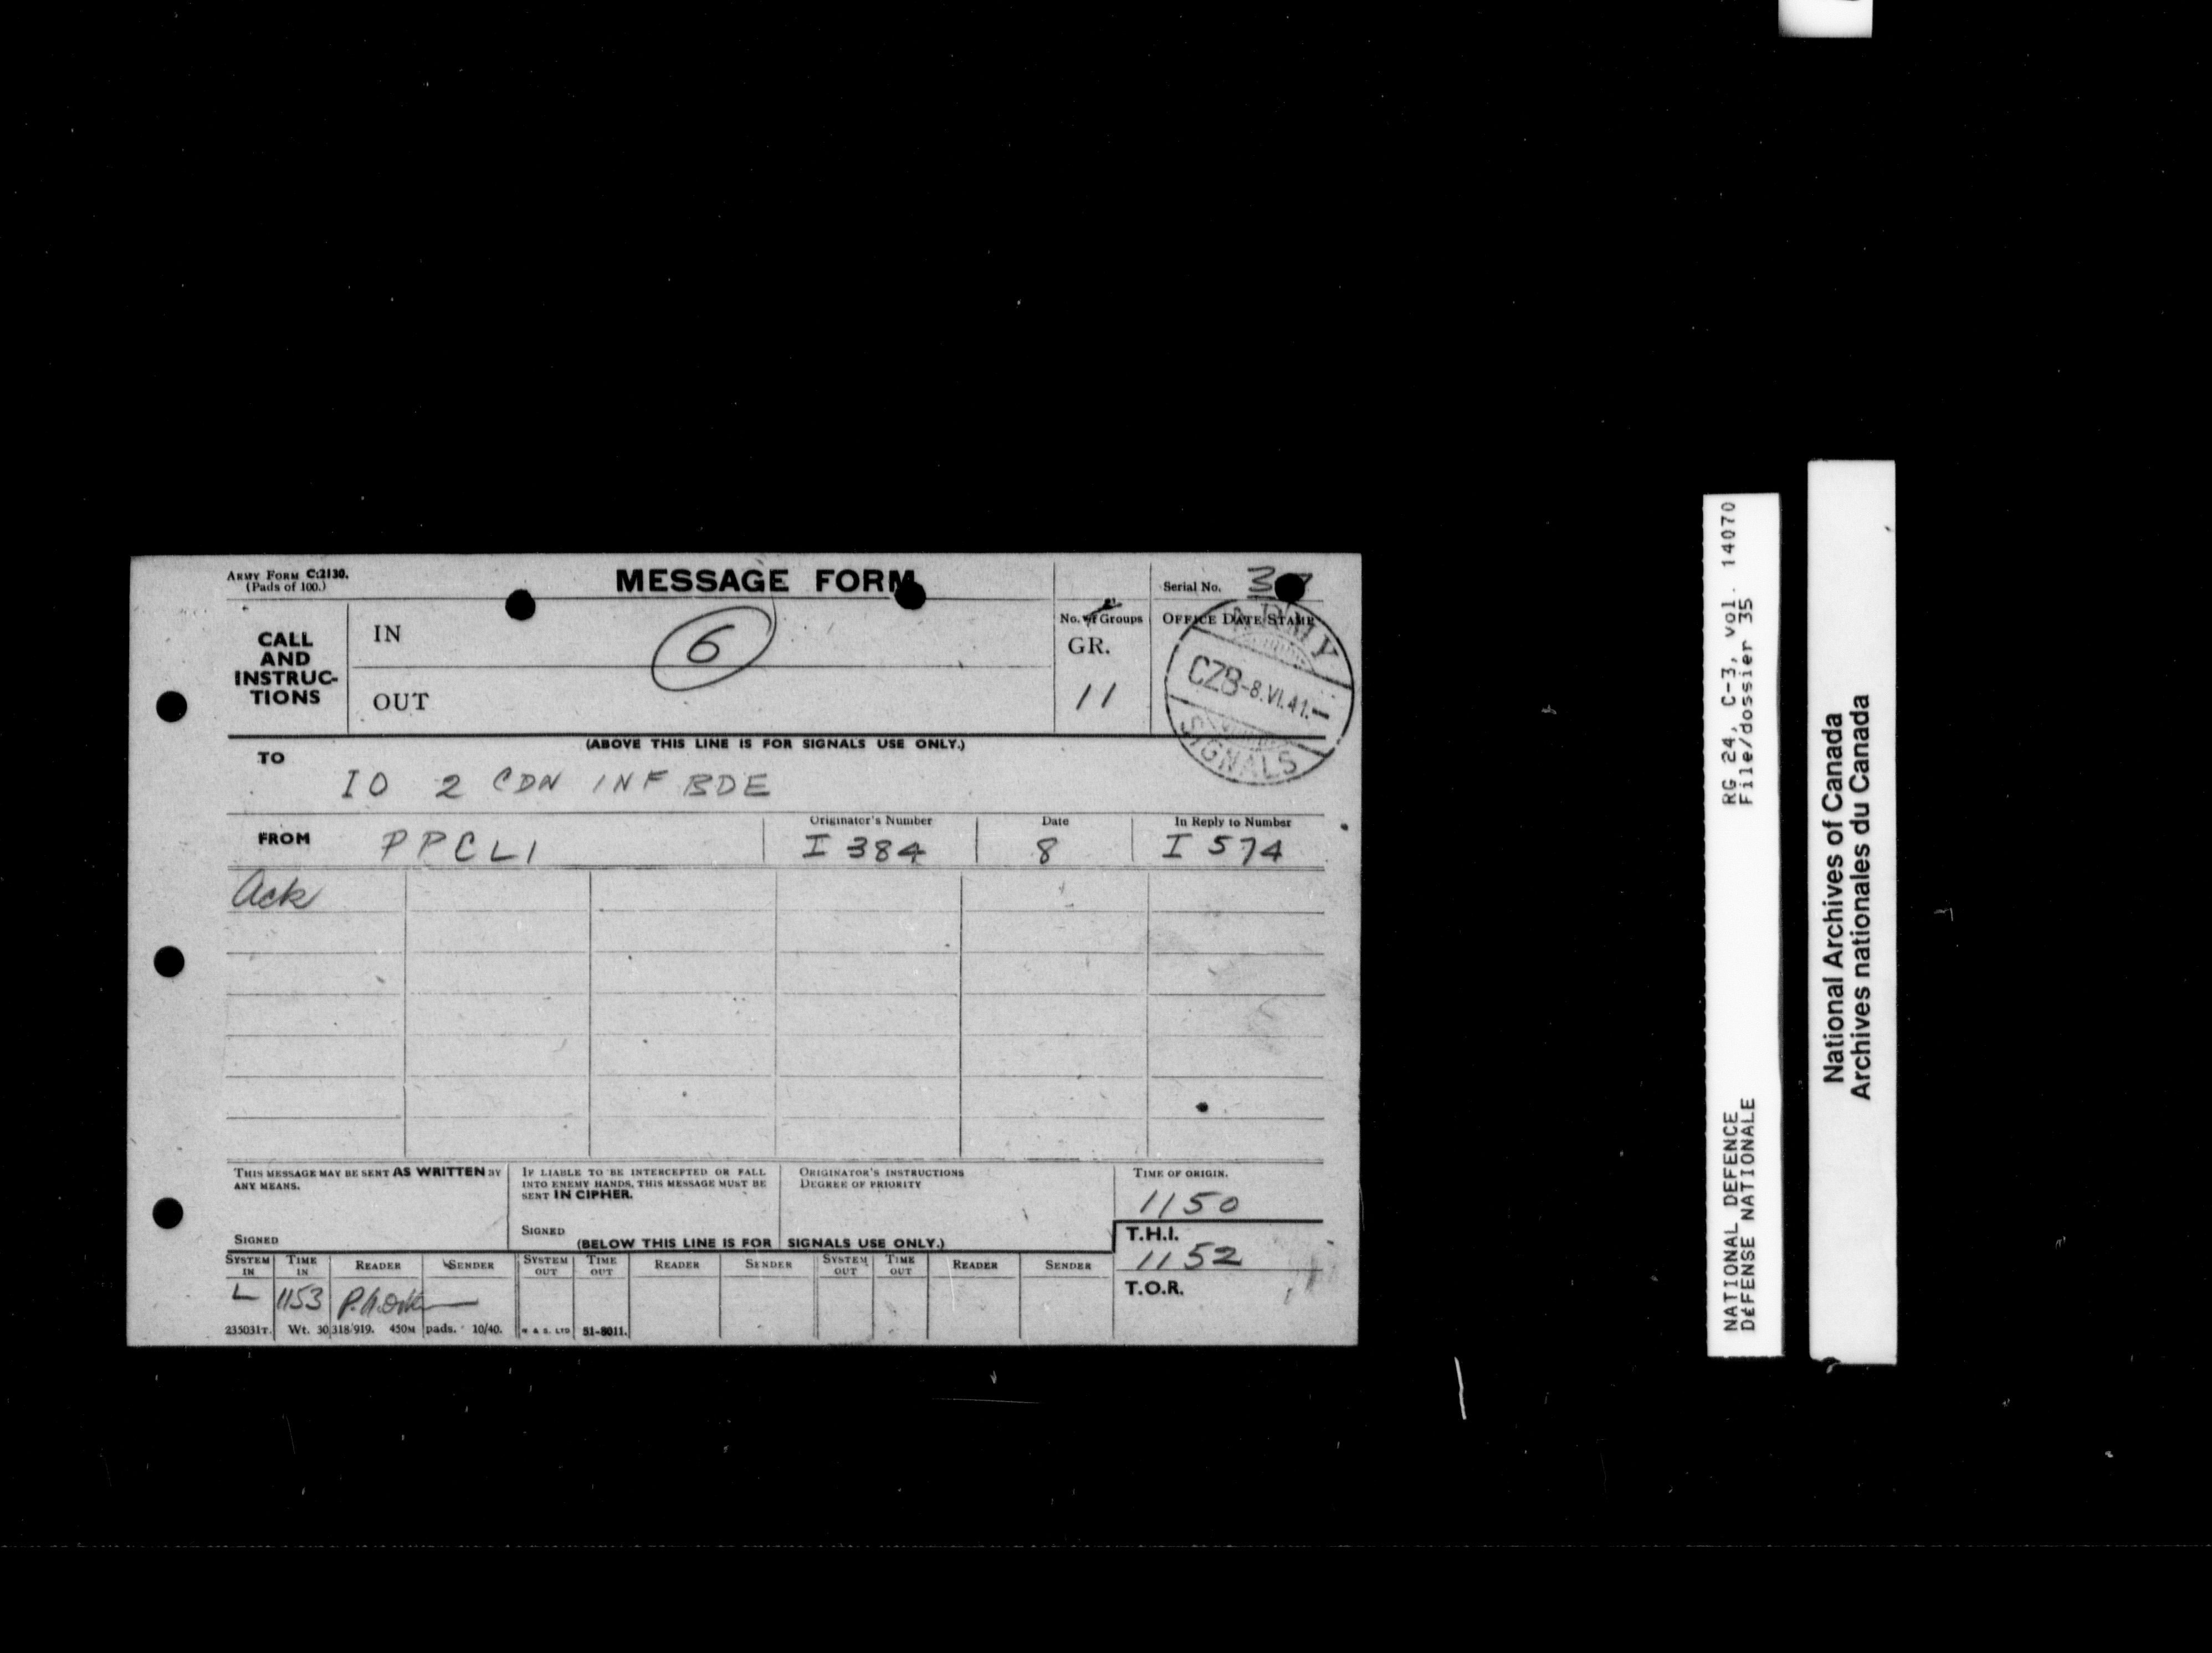 ARMY FORM C.2130.
(Pads of 100.)
MESSAGE FORM
Serial No.
CALL
AND
INSTRUC-
TIONS
IN
6
OUT
No. of Groups
GR.
11
OFFICE DATE STAMP
ARMY
CZB-8.VI.41.-
SIGNALS
(ABOVE THIS LINE IS FOR SIGNALS USE ONLY.)
TO
IO 2 CDN INF BDE
FROM
PPCLI
Originator's Number
I 384
Date
8
In Reply to Number
I 574
Ack
THIS MESSAGE MAY BE SENT AS WRITTEN BY
ANY MEANS.
SIGNED
IF LIABLE TO BE INTERCEPTED OR FALL
INTO ENEMY HANDS, THIS MESSAGE MUST BE
SENT IN CIPHER.
SIGNED
ORIGINATOR'S INSTRUCTIONS
DEGREE OF PRIORITY
TIME OF ORIGIN.
1150
T.H.I.
1152
T.O.R.
(BELOW THIS LINE IS FOR SIGNALS USE ONLY.)
SYSTEM IN TIME IN READER SENDER SYSTEM OUT TIME OUT READER SENDER SYSTEM OUT TIME OUT READER SENDER
L 1153
235031T. Wt. 30318/919. 450M pads. 10/40. 51-8011.
RG 24, C-3, vol. 14070
File/dossier 35
NATIONAL DEFENCE
DéFENSE NATIONALE
National Archives of Canada
Archives nationales du Canada